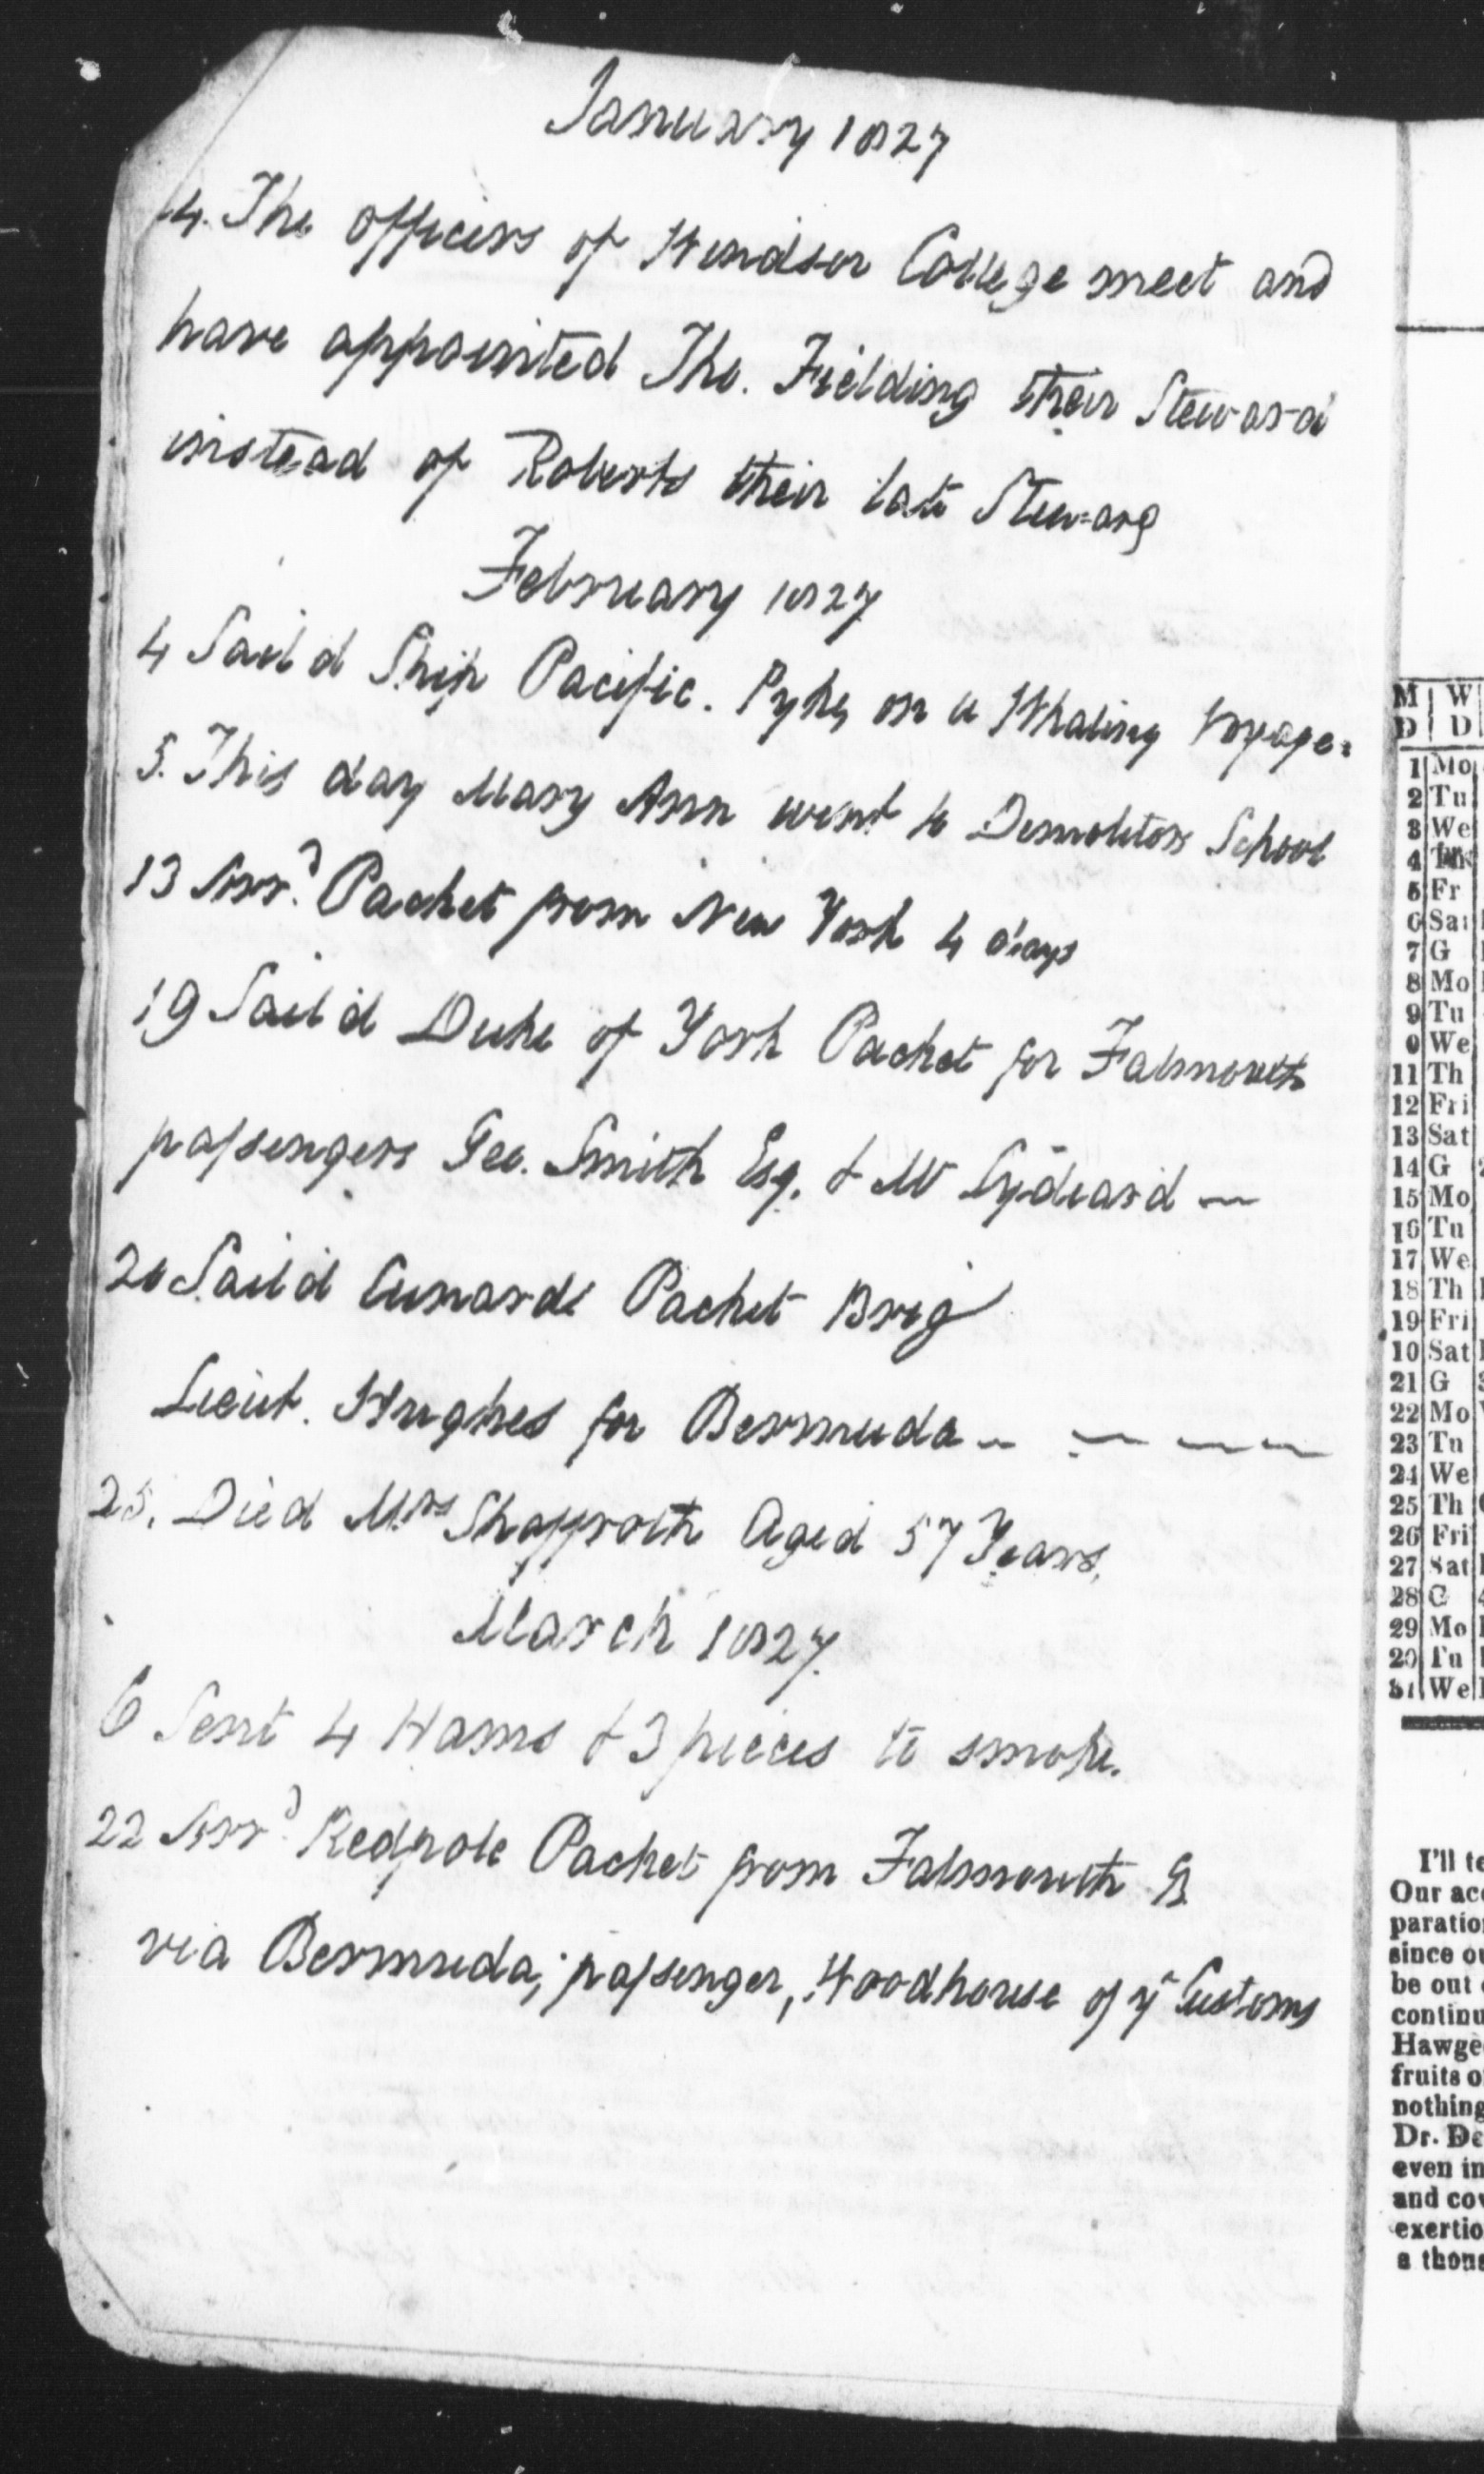 January 1827
14. The officers of Windsor College meet and
have appointed Tho. Fielding their Steward
instead of Roberts their late Steward
February 1827
4 Sail'd Ship Pacific. Pyke, on a Whaling Voyage.
5. This day Mary Ann went to Demolitors School
13 Arrd. Packet from New York 4 days
19 Sail'd Duke of York Packet for Falmouth
passengers Geo. Smith Esq. & Mr Lydeard —
20 Sail'd Cunards Packet Brig
Lieut. Hughes for Bermuda - — — —
25. Died Mrs Shaffroth Aged 57 Years.
March 1827.
6 Sent 4 Hams & 3 pieces to smoke.
22 Arrd. Redpole Packet from Falmouth &
via Bermuda; passenger, Woodhouse of ye Customs
M W
D D
1 Mo
2 Tu
3 We
4
5 Fr
6 Sat
7 G
8 Mo
9 Tu
0 We
11 Th
12 Fri
13 Sat
14 G
15 Mo
16 Tu
17 We
18 Th
19 Fri
10 Sat
21 G
22 Mo
23 Tu
24 We
25 Th
26 Fri
27 Sat
28 G
29 Mo
20 Tu
31 We
I'll te
Our acc
paratio
since ou
be out
continu
Hawge
fruits o
nothing
Dr. De
even in
and cov
exertio
a thous